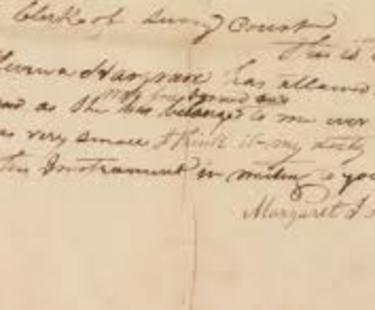 Clerk of Surry Court
This is
Hargrave has attained
as she has belonge to me ever
as very small I think it my duty
this Instrument in writing to you
Margaret